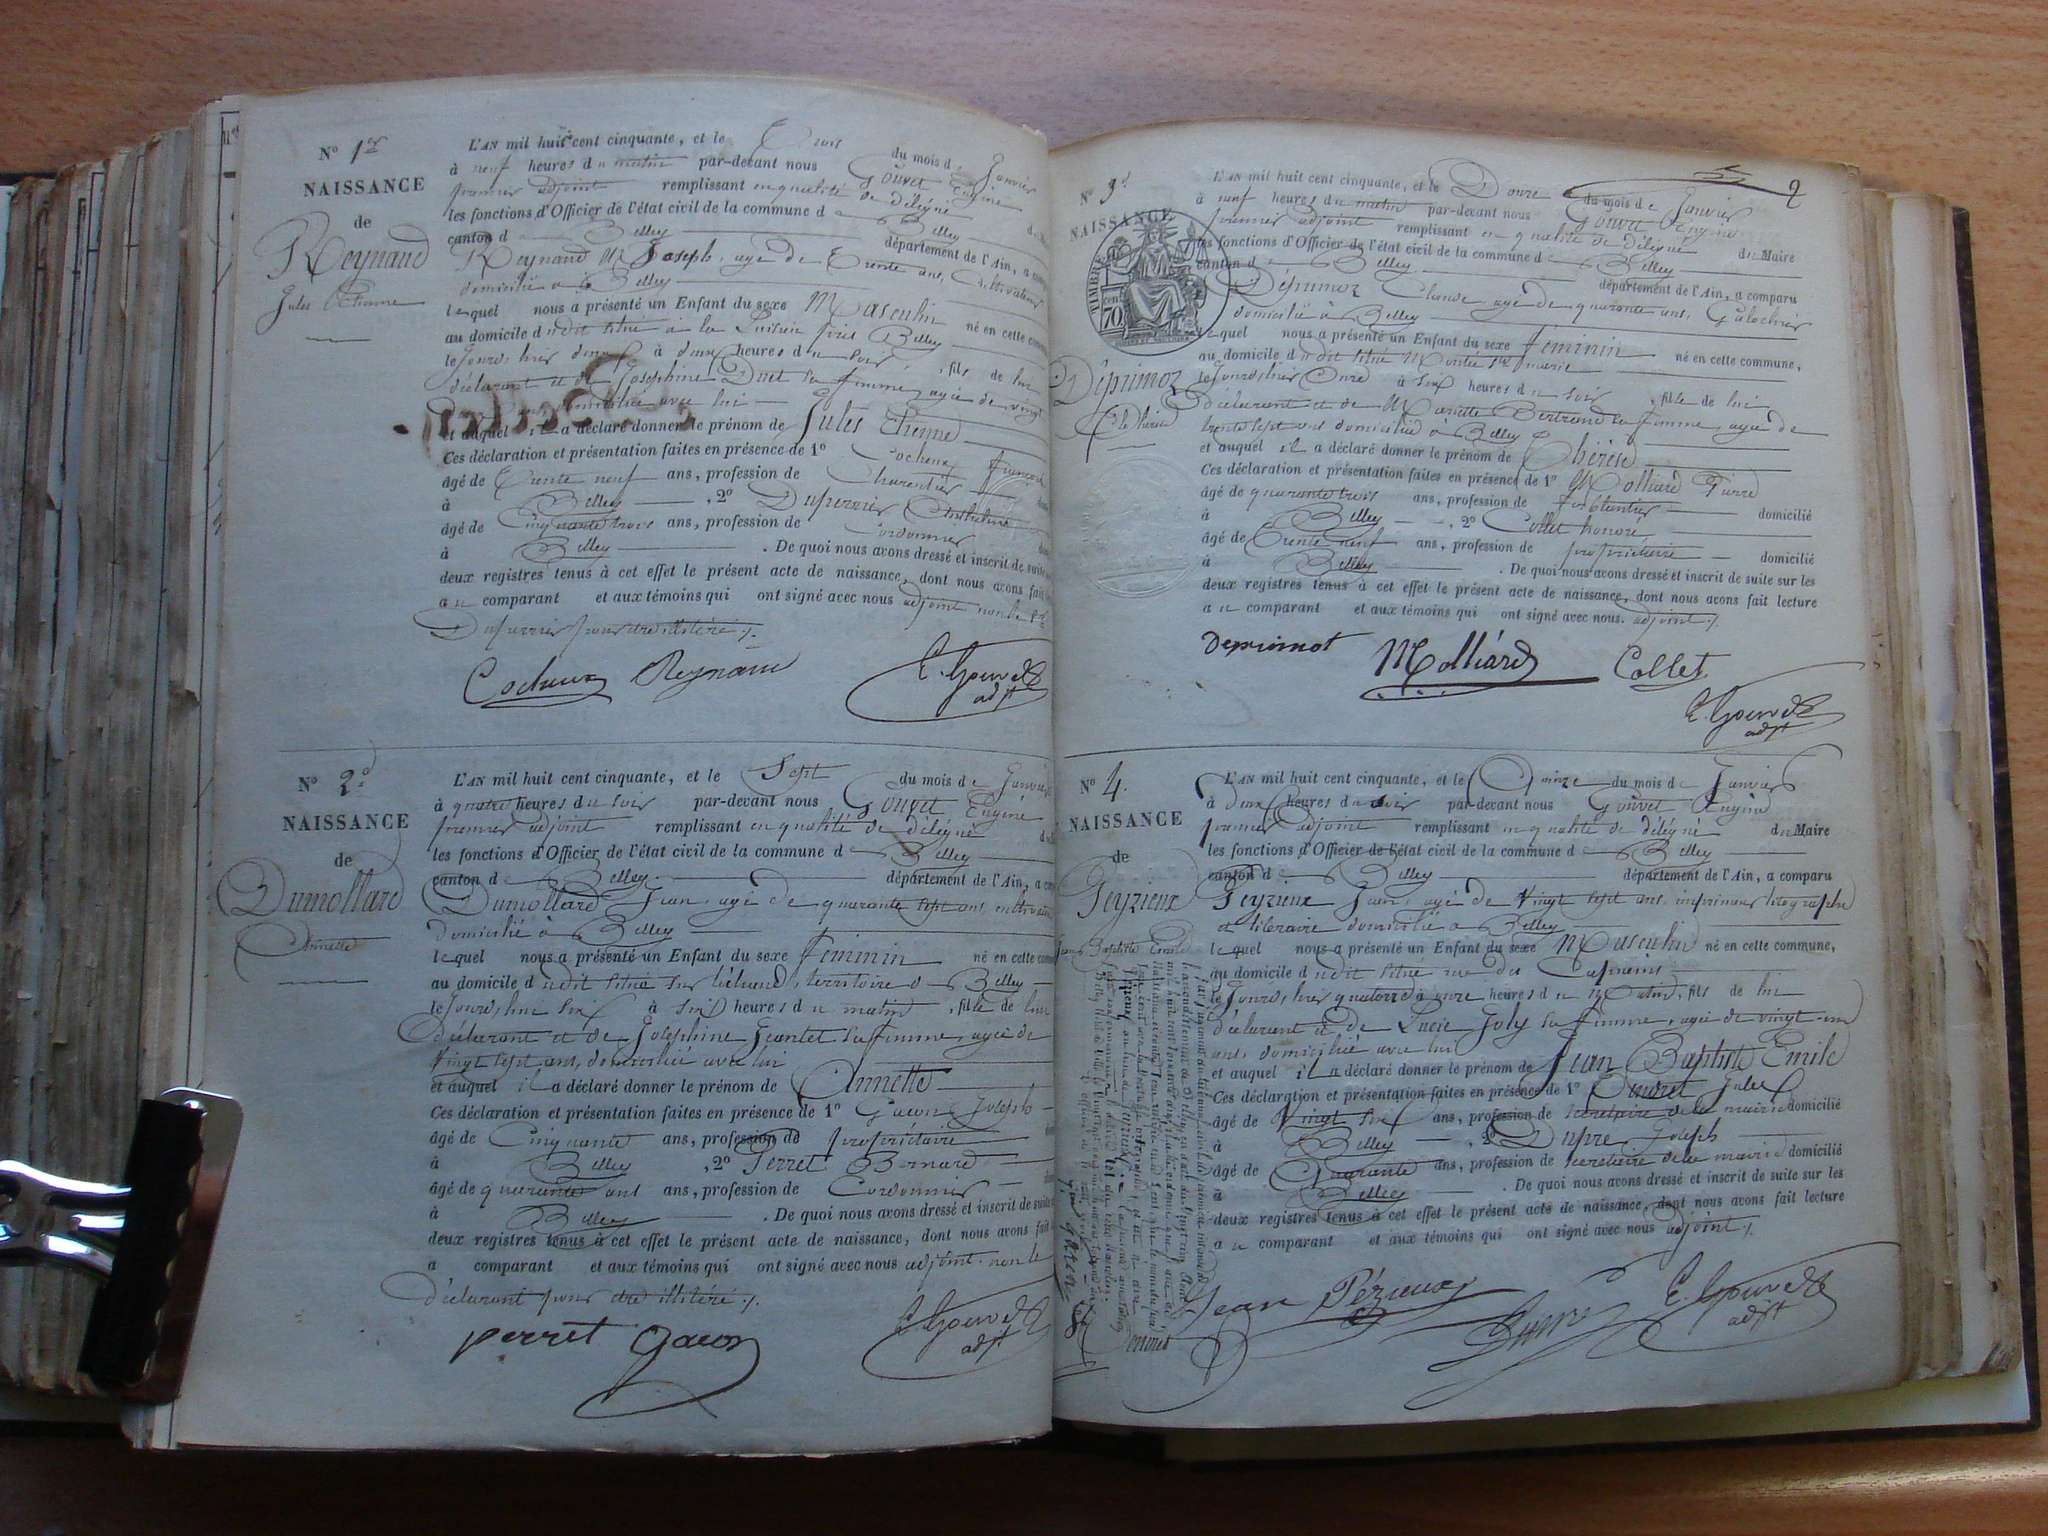 No 1er
NAISSANCE
de
Reynaud
Jules Etienne
L'AN mil huit cent cinquante, et le Trois du mois de Janvier
à neuf heures du matin par-devant nous Gouvet Eugène
premier adjoint remplissant en qualité de délégué
les fonctions d'Officier de l'état civil de la commune de Belley
canton de Belley département de l'Ain, a
Reynaud Joseph, agé de Trente ans, Cultivateur
domicilié à Belley
lequel nous a présenté un Enfant du sexe Masculin né en cette
au domicile dudit situé à la près Belley
le Jourd'hier deux à deux heures du soir, fils de lui
déclarant et de Joséphine sa femme, agée de vingt
domiciliée avec lui
et auquel il a déclaré donner le prénom de Jules Etienne
Ces déclaration et présentation faites en présence de 1o Cocheux
âgé de Trente neuf ans, profession de Charcutier
à Belley, 2o Duperrier Anthelme
âgé de Cinquante trois ans, profession de Cordonnier
à Belley. De quoi nous avons dressé et inscrit de suite
deux registres tenus à cet effet le présent acte de naissance, dont nous avons fait
au comparant et aux témoins qui ont signé avec nous adjoint non le
Duperrier pour être illitéré ./.
Cocheux Reynaud E. Gouvet
adjt
No 2d
NAISSANCE
de
Dumollard
Annette
L'AN mil huit cent cinquante, et le Sept du mois de Janvier
à quatre heures du soir par-devant nous Gouvet Eugène
premier adjoint remplissant en qualité de délégué
les fonctions d'Officier de l'état civil de la commune de Belley
canton de Belley département de l'Ain, a
Dumollard Jean, agé de quarante sept ans, cultivateur
domicilié à Belley
lequel nous a présenté un Enfant du sexe féminin né en cette
au domicile dudit situé sur territoire de Belley
le Jourd'hui six à six heures du matin, fille de lui
déclarant et de Joséphine Jeantet sa femme, agée de
Vingt sept ans, domiciliée avec lui
et auquel il a déclaré donner le prénom de Annette
Ces déclaration et présentation faites en présence de 1o Gacon Joseph
âgé de Cinquante ans, profession de propriétaire
à Belley, 2o Perret Bernard
âgé de quarante ans ans, profession de Cordonnier
à Belley. De quoi nous avons dressé et inscrit de suite
deux registres tenus à cet effet le présent acte de naissance, dont nous avons fait
au comparant et aux témoins qui ont signé avec nous adjoint non le
déclarant pour être illitéré ./.
perret Gacon E. Gouvet
adjt
2
No 3e
NAISSANCE
TIMBRE
70
cent
Déprimoz
Thérèse
L'AN mil huit cent cinquante, et le Douze du mois de Janvier
à neuf heures du matin par-devant nous Gouvet Eugène
premier adjoint remplissant en qualité de délégué du Maire
les fonctions d'Officier de l'état civil de la commune de Belley
canton de Belley département de l'Ain, a comparu
Déprimoz Claude, agé de quarante ans, Galochier
domicilié à Belley
lequel nous a présenté un Enfant du sexe féminin né en cette commune,
au domicile dudit situé
le Jourd'hier Onze à six heures du soir, fille de lui
déclarant et de Mariette Bertrand sa femme, agée de
trente sept ans domiciliée à Belley
et auquel il a déclaré donner le prénom de Thérèse
Ces déclaration et présentation faites en présence de 1o Molliard Pierre
âgé de quarante trois ans, profession de ferblantier domicilié
à Belley, 2o Collet honoré
âgé de Trente neuf ans, profession de propriétaire domicilié
à Belley. De quoi nous avons dressé et inscrit de suite sur les
deux registres tenus à cet effet le présent acte de naissance, dont nous avons fait lecture
au comparant et aux témoins qui ont signé avec nous. adjoint ./.
Deprimot Molliard Collet
E. Gouvet
adjt
No 4.
NAISSANCE
de
Peyrieux
Jean Baptiste Emile
L'AN mil huit cent cinquante, et le Quinze du mois de Janvier
à deux heures du soir par-devant nous Gouvet Eugène
premier adjoint remplissant en qualité de délégué du Maire
les fonctions d'Officier de l'état civil de la commune de Belley
canton de Belley département de l'Ain, a comparu
Peyrieux Jean, agé de Vingt sept ans, imprimeur litographe
et libraire domicilié à Belley
lequel nous a présenté un Enfant du sexe Masculin né en cette commune,
au domicile dudit situé rue des Capucins
le Jourd'hier quatorze à onze heures du Matin, fils de lui
déclarant et de Lucie Joly sa femme, agée de vingt-un
ans, domiciliée avec lui
et auquel il a déclaré donner le prénom de Jean Baptiste Emile
Ces déclaration et présentation faites en présence de 1o Jules
âgé de Vingt six ans, profession de secrétaire de la mairie domicilié
à Belley, 2o Dupré Joseph
âgé de Quarante ans, profession de secrétaire de la mairie domicilié
à Belley. De quoi nous avons dressé et inscrit de suite sur les
deux registres tenus à cet effet le présent acte de naissance, dont nous avons fait lecture
au comparant et aux témoins qui ont signé avec nous adjoint ./.
Jean Pézieux E. Gouvet
adjt